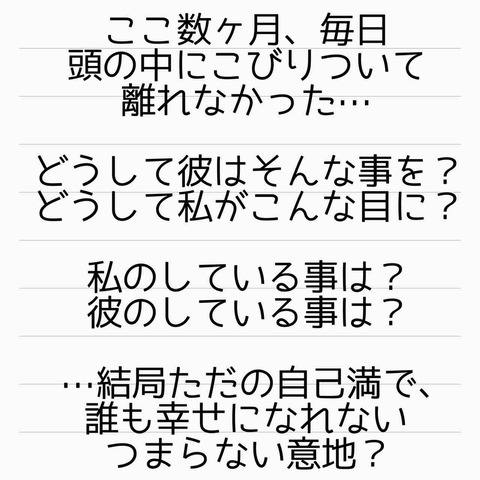 ここ数ヶ月、毎日
頭の中にこびりついて
離れなかった…
どうして彼はそんな事を？
どうして私がこんな目に？
私のしている事は？
彼のしている事は？
…結局ただの自己満で、
誰も幸せになれない
つまらない意地？